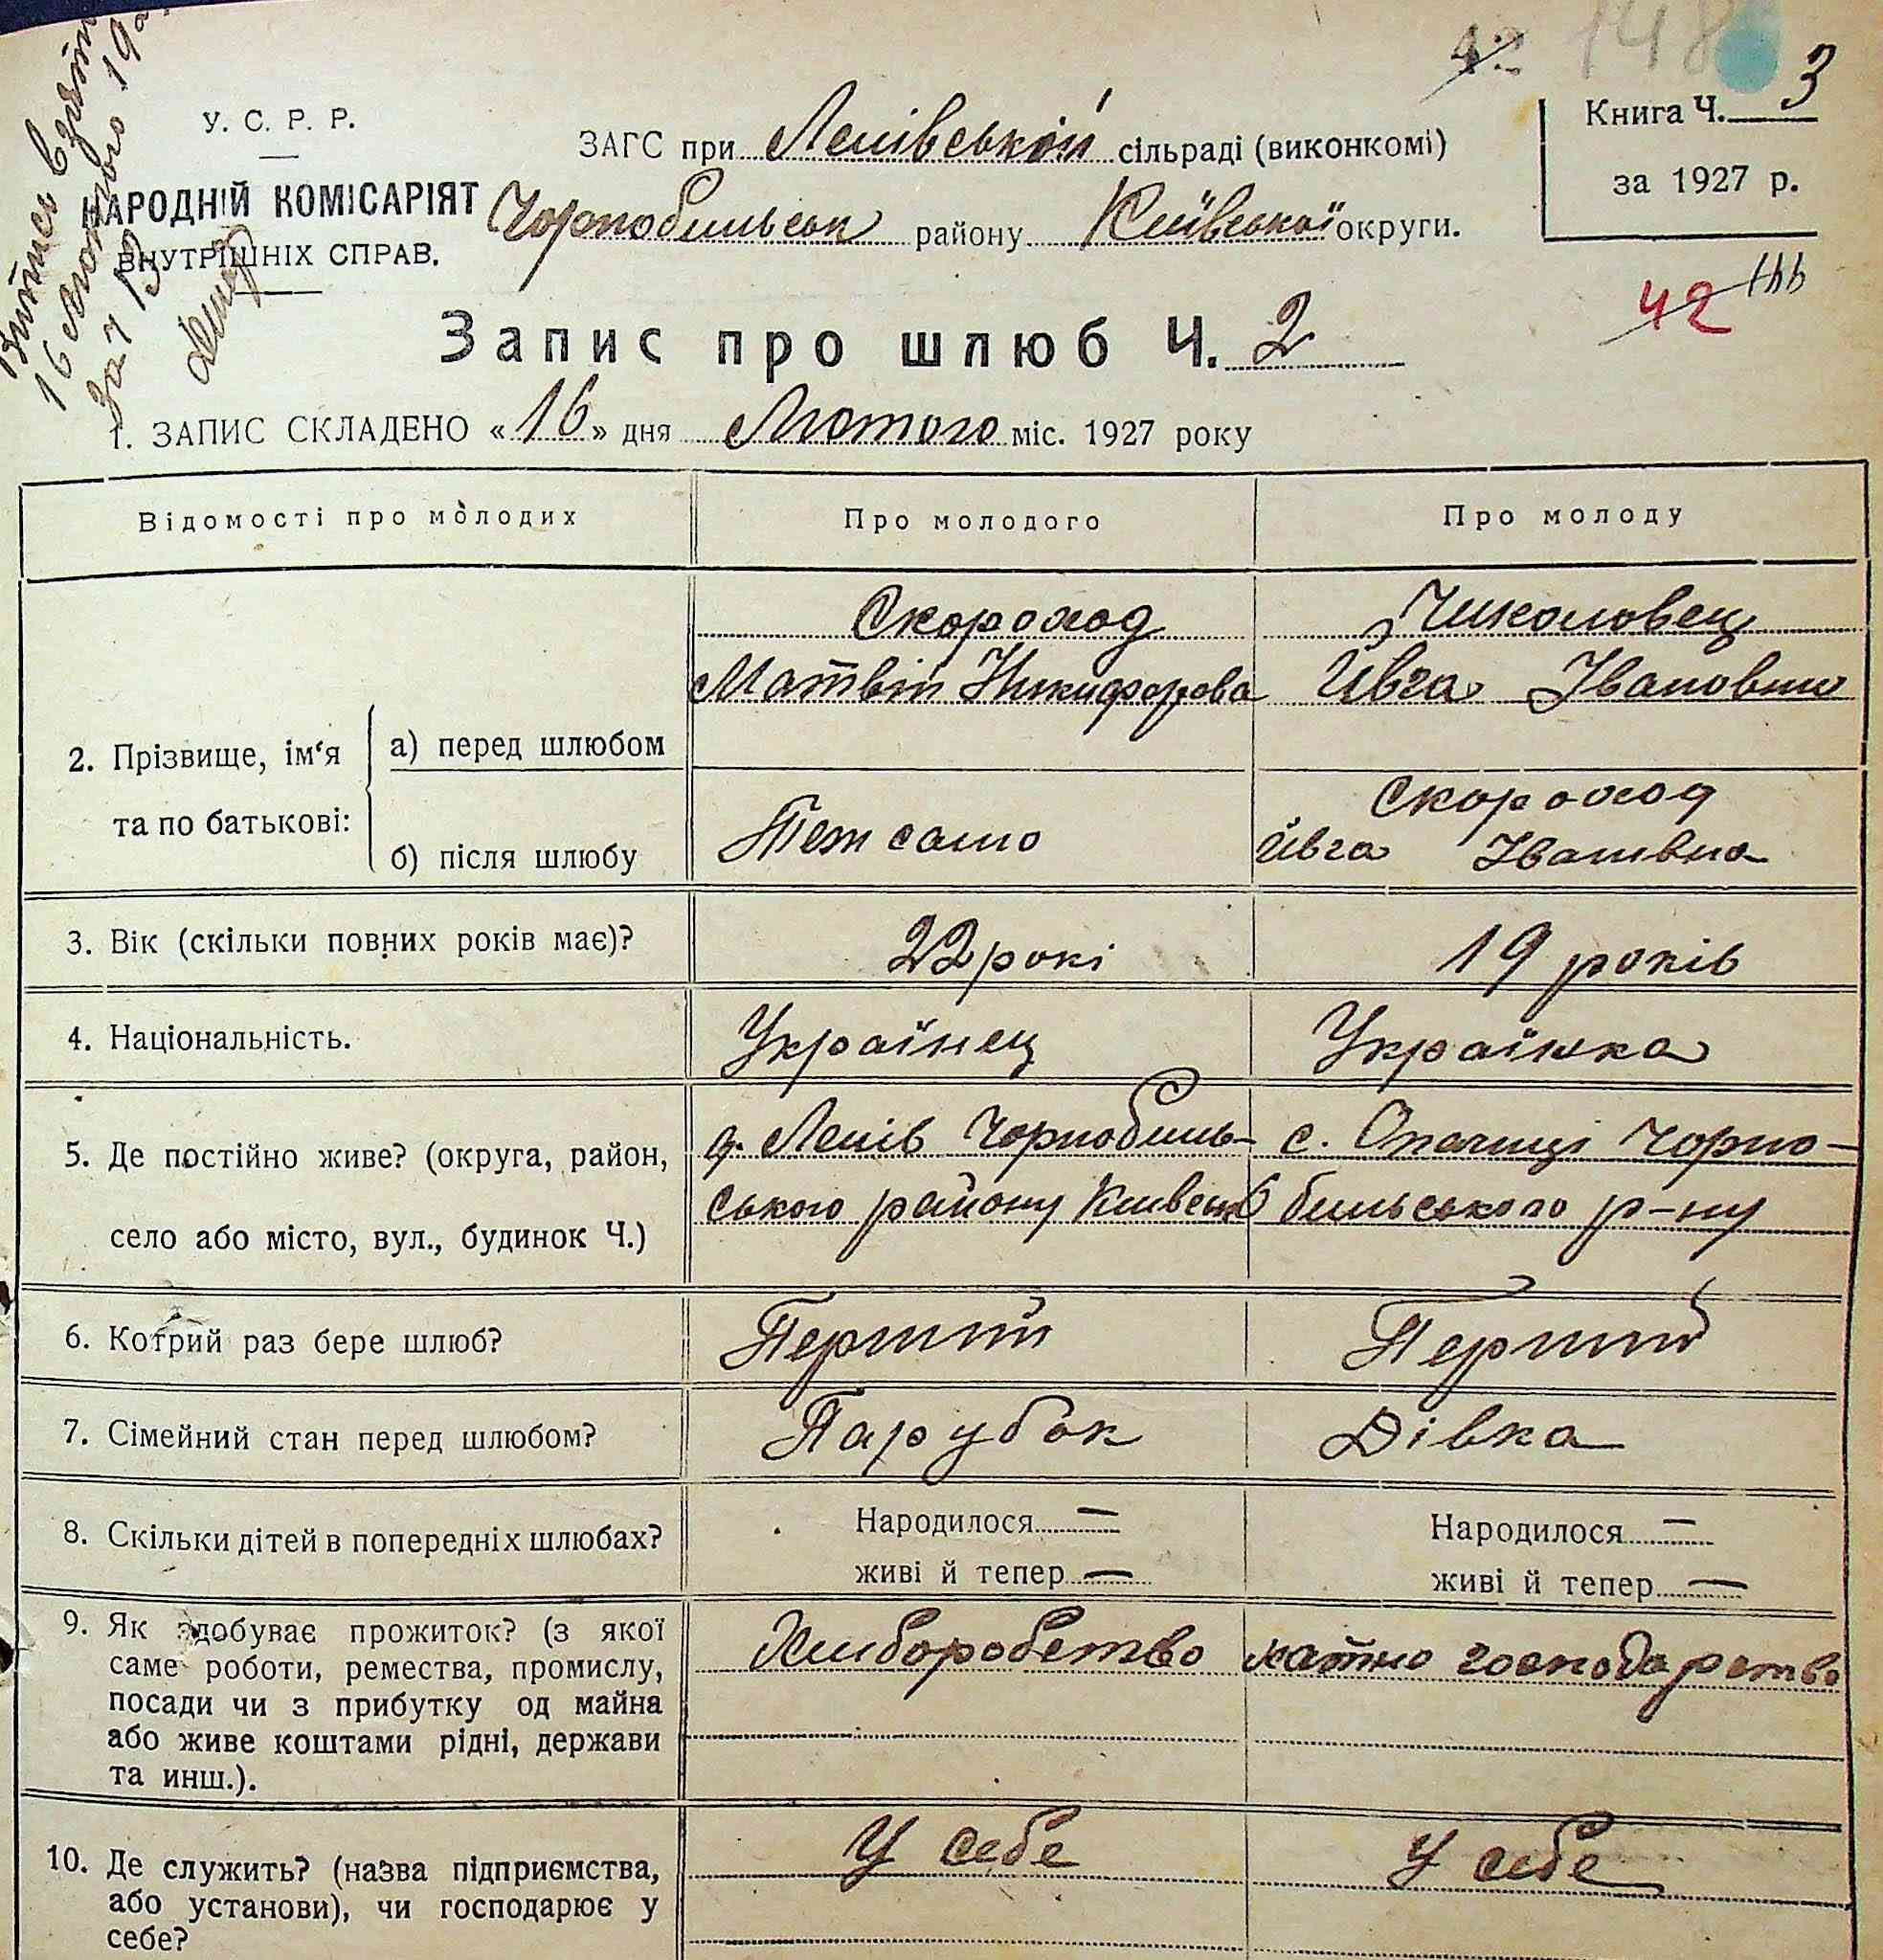 42 148
У. С. Р. Р.
НАРОДНІЙ КОМІСАРІЯТ
ВНУТРІШНІХ СПРАВ.
ЗАГС при Лелівській сільраді (виконкомі)
Чорнобильськ району Київської округи.
Книга Ч. 3
за 1927 р.
42 144
Запис про шлюб Ч. 2
1. ЗАПИС СКЛАДЕНО «16» дня Лютого міс. 1927 року
Відомості про молодих
Про молодого
Про молоду
2. Прізвище, ім‘я
та по батькові:
а) перед шлюбом
Скороход
Матвій Никифорова
Чиколовец
Ивга Івановна
б) після шлюбу
Теж само
Скороход
Ивга Іванівна
3. Вік (скільки повних років має)?
22 рокі
19 років
4. Національність.
Українец
Українка
5. Де постійно живе? (округа, район,
село або місто, вул., будинок Ч.)
д. Лелів Чорнобиль-
ського району Київськ
с. Опачиці Чорно-
бильського р-ну
6. Котрий раз бере шлюб?
Перший
Перший
7. Сімейний стан перед шлюбом?
Парубок
Дівка
8. Скільки дітей в попередніх шлюбах?
Народилося —
живі й тепер —
Народилося —
живі й тепер —
9. Як здобуває прожиток? (з якої
саме роботи, ремества, промислу,
посади чи з прибутку од майна
або живе коштами рідні, держави
та инш.).
Хлиборобство
хатнo господарство
10. Де служить? (назва підприємства,
або установи), чи господарює у
себе?
У себе
У себе